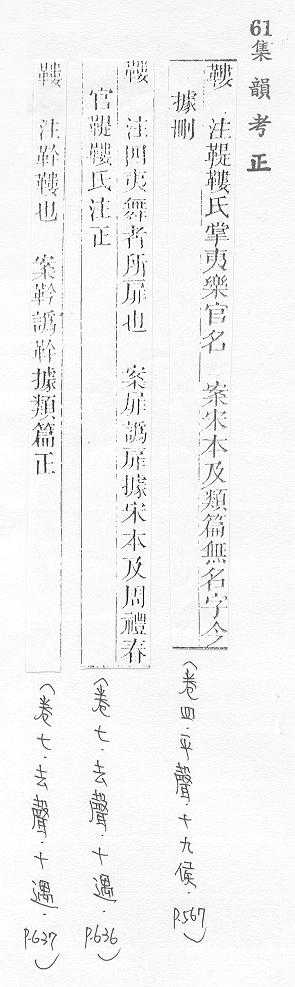 61集韻考正
鞻 注鞮鞻氏掌夷樂官名 案宋本及類篇無名字今
據刪
(卷四．平聲．十九侯．P.567)
鞻 注四夷舞者所屝也 案屝譌扉據宋本及周禮春
官鞮鞻氏注正
(卷七．去聲．十遇．P.636)
鞻 注軡鞻也 案軡譌幹據類篇正
(卷七．去聲．十遇．P.637)